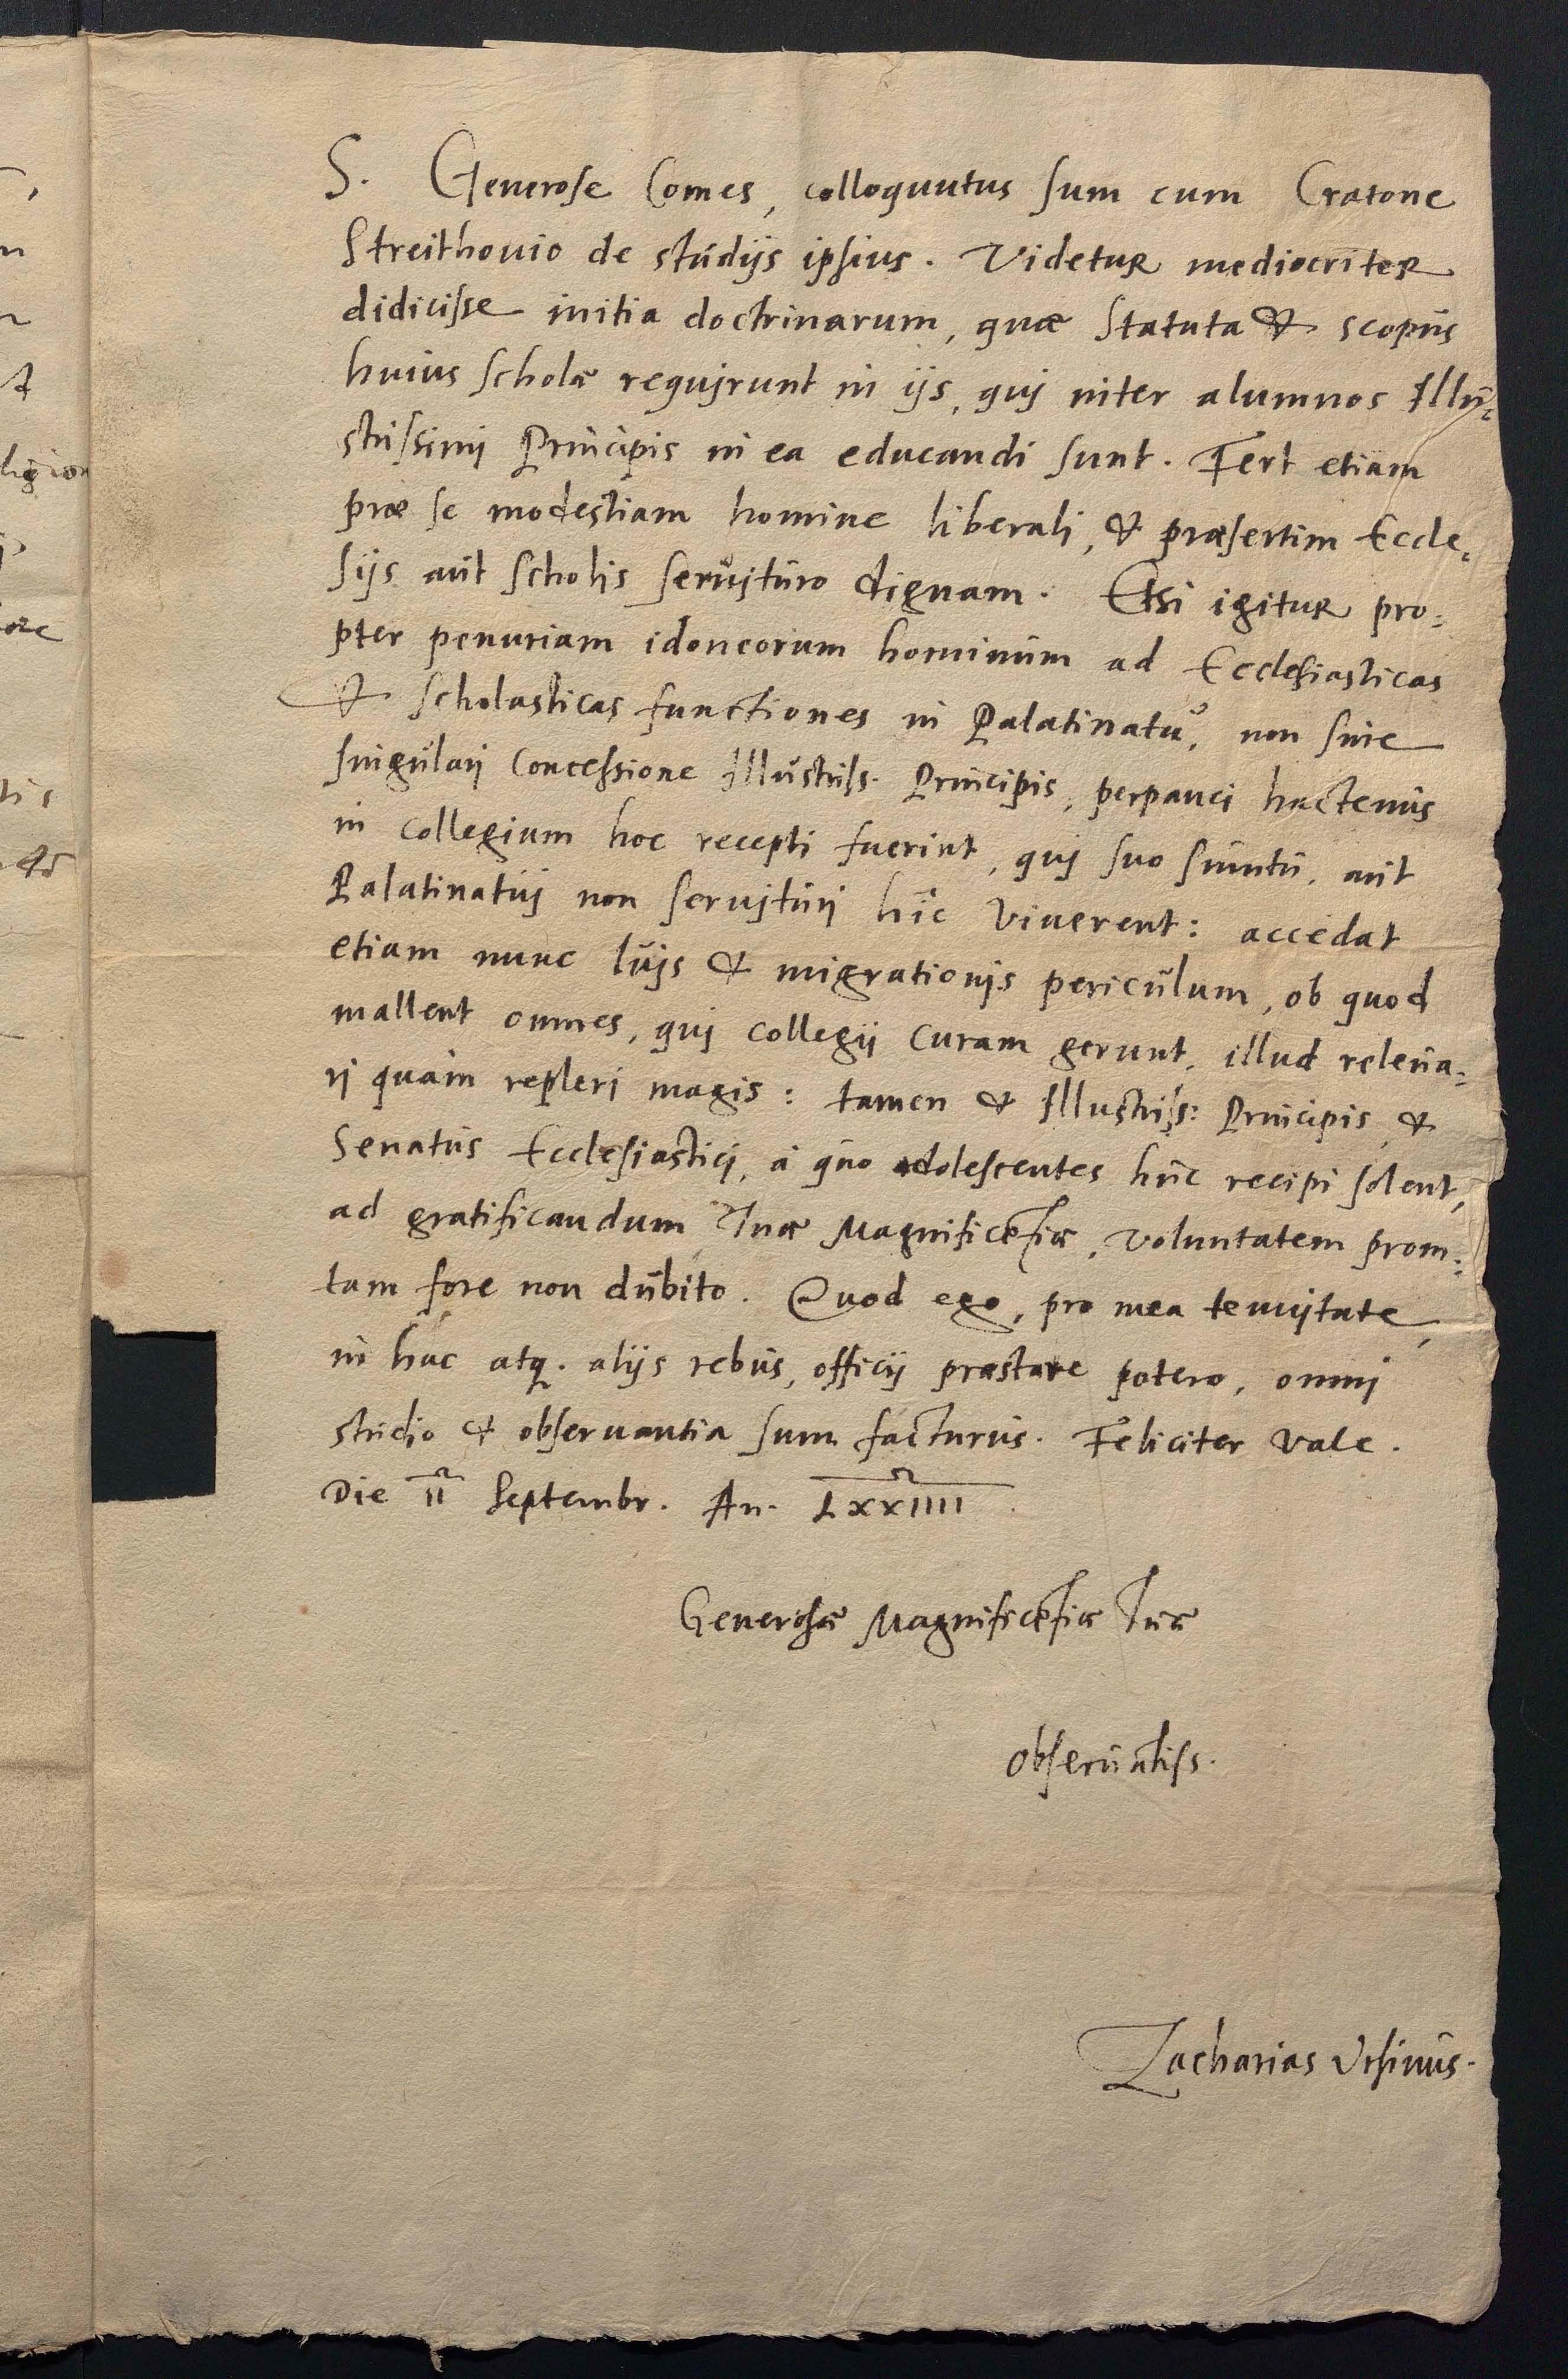 S. Generose Comes, colloquutus sum cum Cratone
Streithouio de studijs ipsius. Videtur mediocriter
didicisse initia doctrinarum, quæ Statuta & scopus
huius scholæ requirunt in ijs, qui inter alumnos Illu-
strissimi Principis in ea educandi sunt. Fert etiam
præ se modestiam homine liberali, & præsertim Eccle-
sijs aut scholis seruituro dignam. Etsi igitur pro-
pter penuriam idoneorum hominum ad Ecclesiasticas
& scholasticas functiones in Palatinatu, non sine
singulari Concessione Illustriss. Principis, perpauci hactenus
in collegium hoc recepti fuerint, qui suo sumtu, aut
Palatinatui non seruituri hic viuerent: accedat
etiam nunc luis & migrationis periculum, ob quod
mallent omnes, qui Collegij curam gerunt, illud releua-
ri quam repleri magis: tamen & Illustriss: Principis, &
Senatus Ecclesiastici, à quo adolescentes huc recipi solent,
ad gratificandum Tuæ Magnificẽtiæ, voluntatem prom-
tam fore non dubito. Quod ego, pro mea tenuitate,
in hac atq. alijs rebus, officij præstare potero, omni
studio & obseruantia sum facturus. Feliciter vale.
Die II Septembr. An. LXXIIII
Generosæ Magnificẽtiæ Tuæ
Obseruãtiss.
Zacharias Vrsinus.